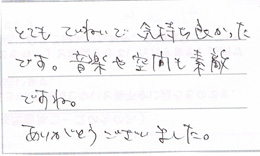 とても ていねいで 気持ち良かった
です。音楽や空間も素敵
ですね。
ありがとうございました。